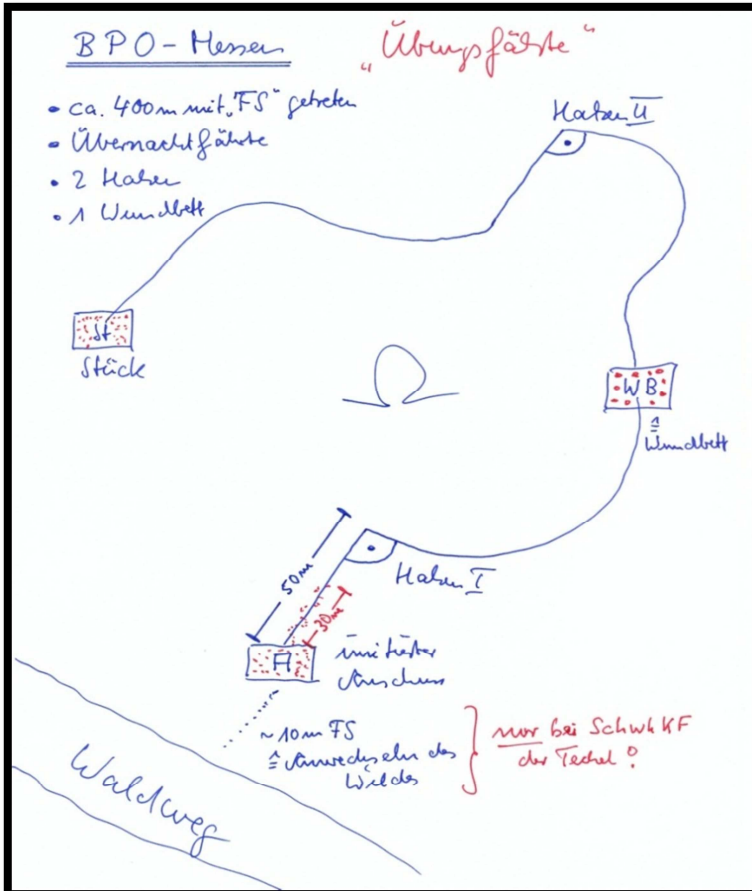 BPO-Hessen
„Übungsfährte“
• ca. 400m mit „FS“ getreten
• Übernachtfährte
• 2 Haken
• 1 Wundbett
Haken II
St
Stück
WB
≙
Wundbett
50m
30m
Haken I
A
imitierter
Anschuss
~10m FS
≙ Anwechseln des
Wildes
nur bei SchwhKF
der Teckel!
Waldweg